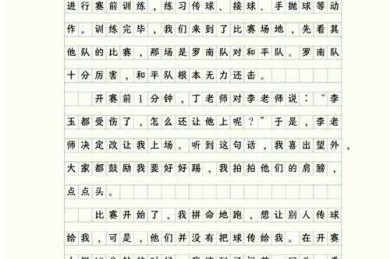 进行赛前训练，练习传球、接球、手抛球等动
作。训练完毕，我们来到了比赛场地，先看其
他队的比赛，那场是罗南队对和平队。罗南队
十分厉害，和平队根本无力还击。
开赛前1分钟，丁老师对李老师说："李
玉都受伤了，怎么还让他上呢？"于是，李老
师决定改让我上场。听到这句话，我喜出望外，
大家都鼓励我要好好踢，我拍拍他们的肩膀，
点点头。
比赛开始了，我拼命地跑，想让别人传球
给我，可是，他们并没有把球传给我。在开赛